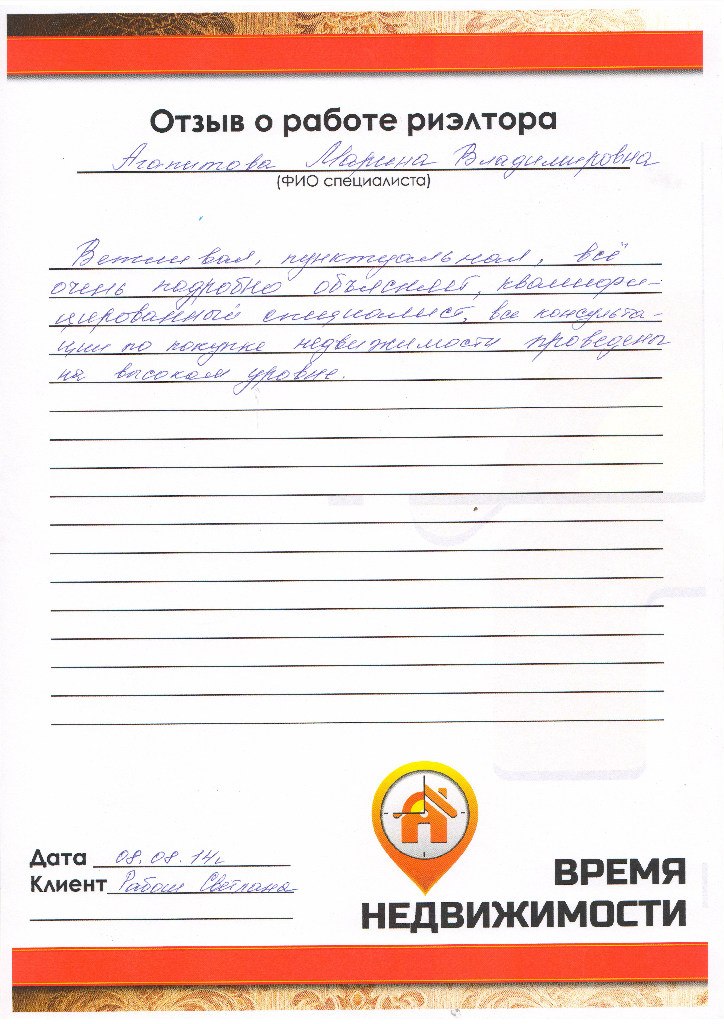 Отзыв о работе риэлтора
Агапитова Марина Владимировна
(ФИО специалиста)
Вежливая, пунктуальная, всё
очень подробно объясняет, квалифи-
цированный специалист, все консульта-
ции по покупке недвижимости проведены
на высоком уровне.
Дата 08.08.14г
Клиент Светлана
ВРЕМЯ
НЕДВИЖИМОСТИ